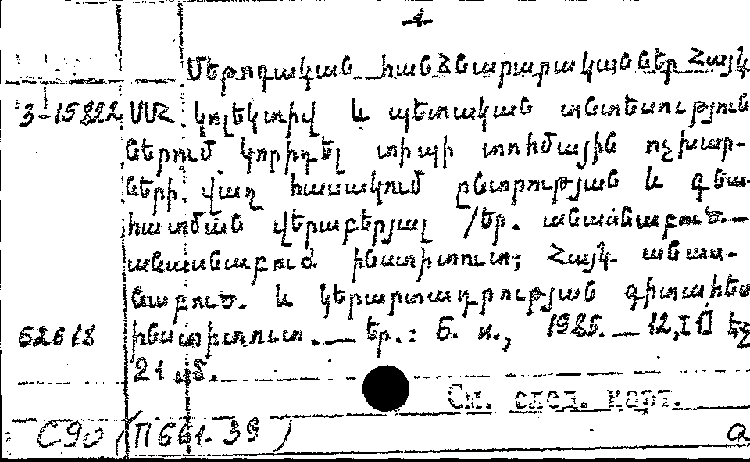 4
Մեթոդական հանձնարարականներ Հայկ
3-15822 ՍՍՀ կոլեկտիվ և պետական տնտեսություն
ներում կորիդել տիպի տոհմային ոչխար-
ների վաղ հասակում ընտրության և գնա
հատման վերաբերյալ /Եր. անասնաբուծ.-
անասնաբուժ ինստիտուտ; Հայկ անաս-
նաբուծ. և կերարտադրության գիտահետ
62618 ինստիտուտ. — Եր.: Б. и., 1985. — 12, I0 էջ
21 սմ.
См. след. карт.
С90 (П661.39)
а